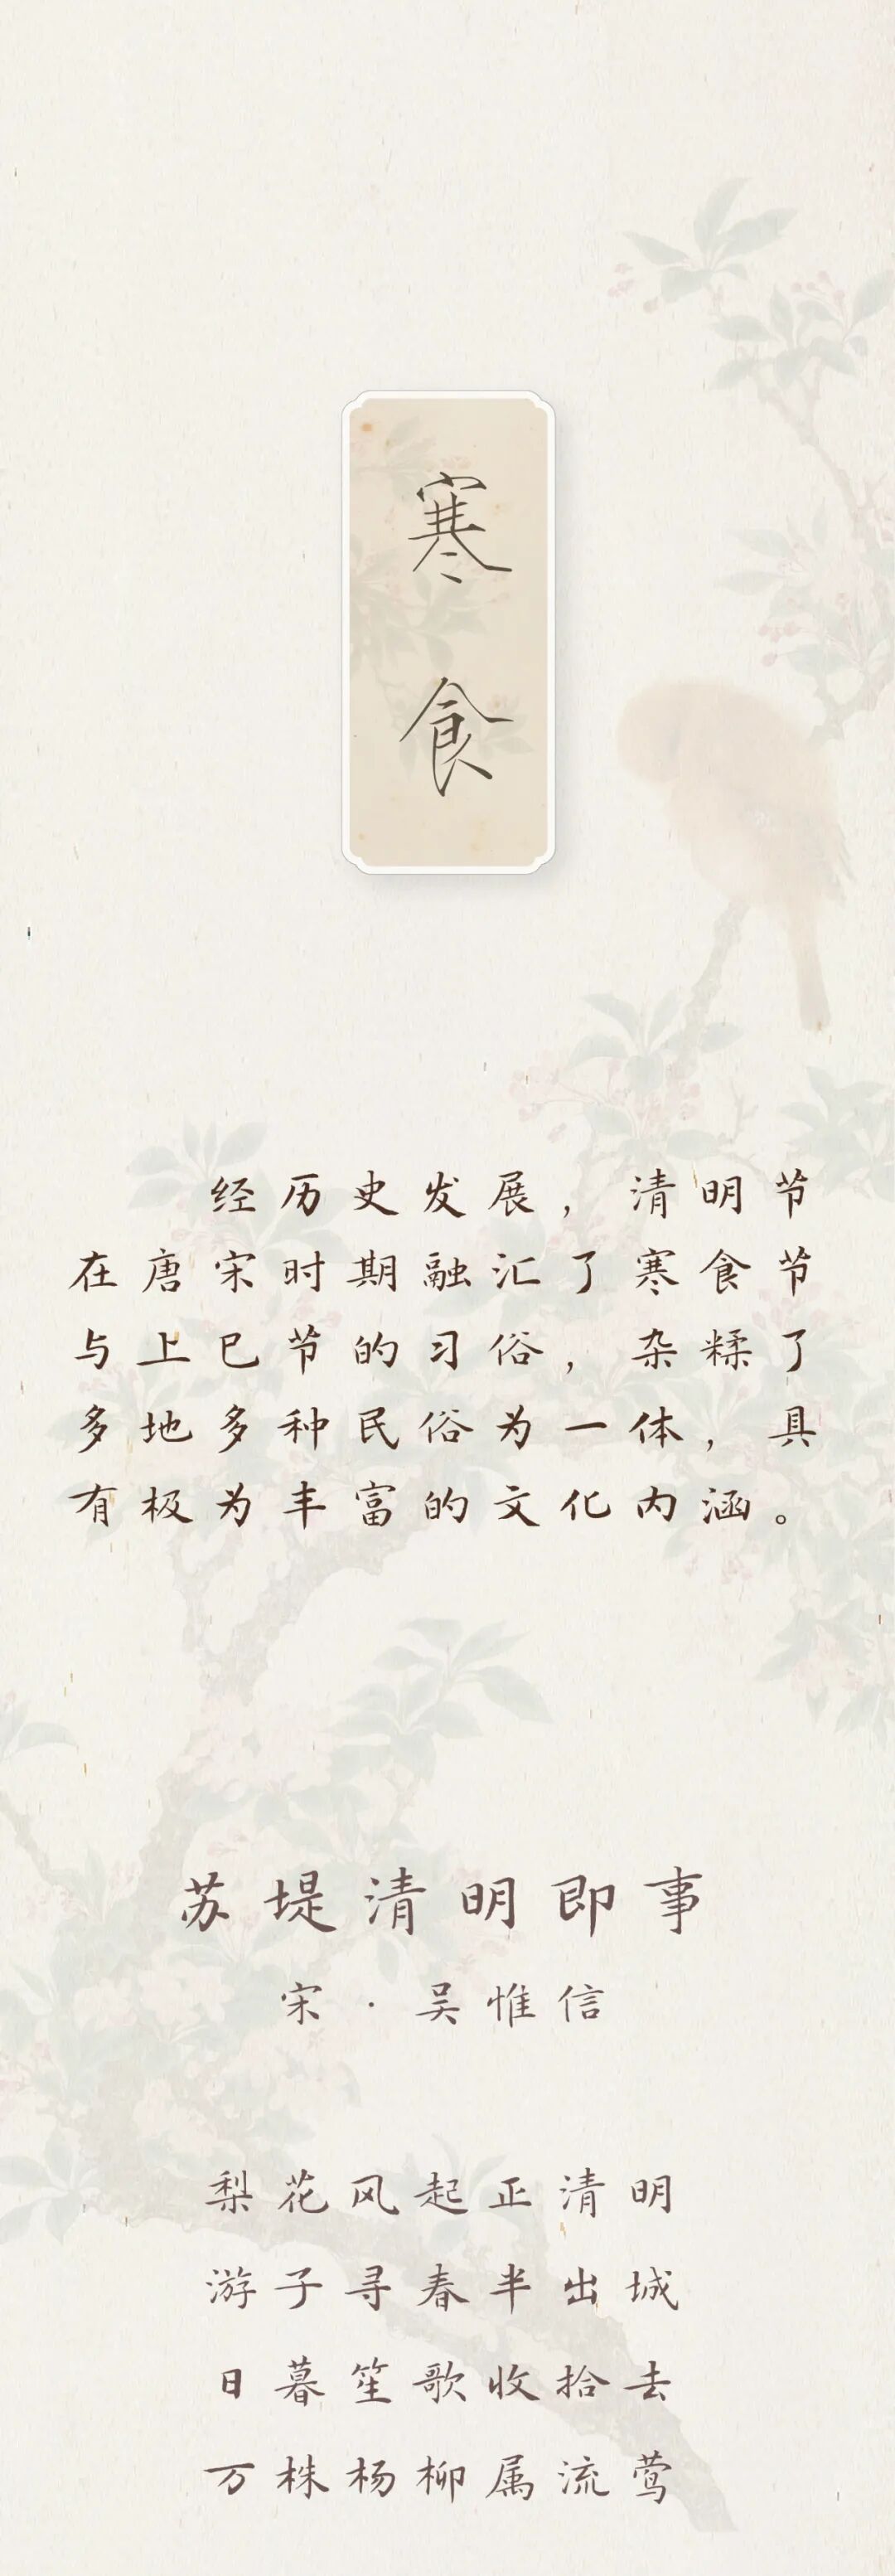 寒食
经历史发展，清明节
在唐宋时期融汇了寒食节
与上巳节的习俗，杂糅了
多地多种民俗为一体，具
有极为丰富的文化内涵。
苏堤清明即事
宋·吴惟信
梨花风起正清明
游子寻春半出城
日暮笙歌收拾去
万株杨柳属流莺